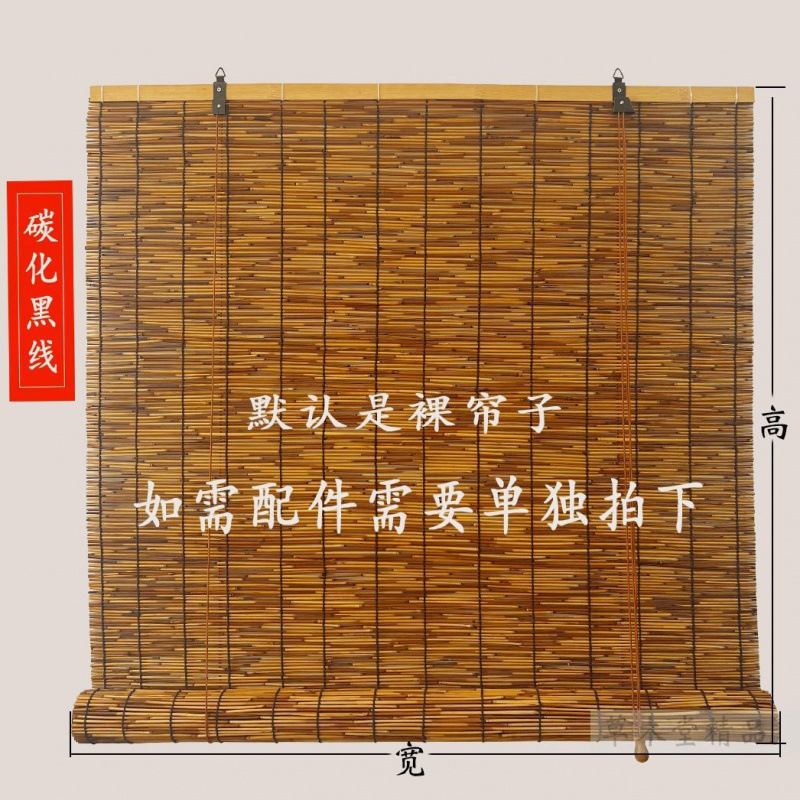 碳化黑线
默认是裸帘子
如需配件需要单独拍下
高
宽
草木堂精品